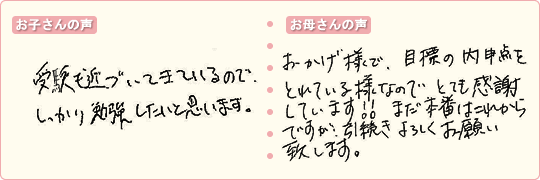 お子さんの声
受験も近づいてきているので、
しっかり勉強したいと思います。
お母さんの声
おかげ様で、目標の内申点を
とれている様なのでとても感謝
しています!! まだ本番はこれから
ですが、引続きよろしくお願い
致します。